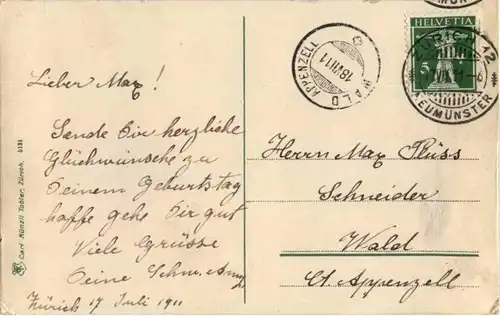 Lieber Max!
Sende Dir herzliche
Glückwünsche zu
Deinem Geburtstag
hoffe gehe Dir gut
Viele Grüsse
Deine Schw. Anny
Zürich 17 Juli 1911
Herrn Max Plüss
Schneider
Wald
Ct. Appenzell
HELVETIA
5
WALD
APPENZELL
18 VII 11
8
12
NEUMÜNSTER
Carl Künzli Tobler, Zürich.